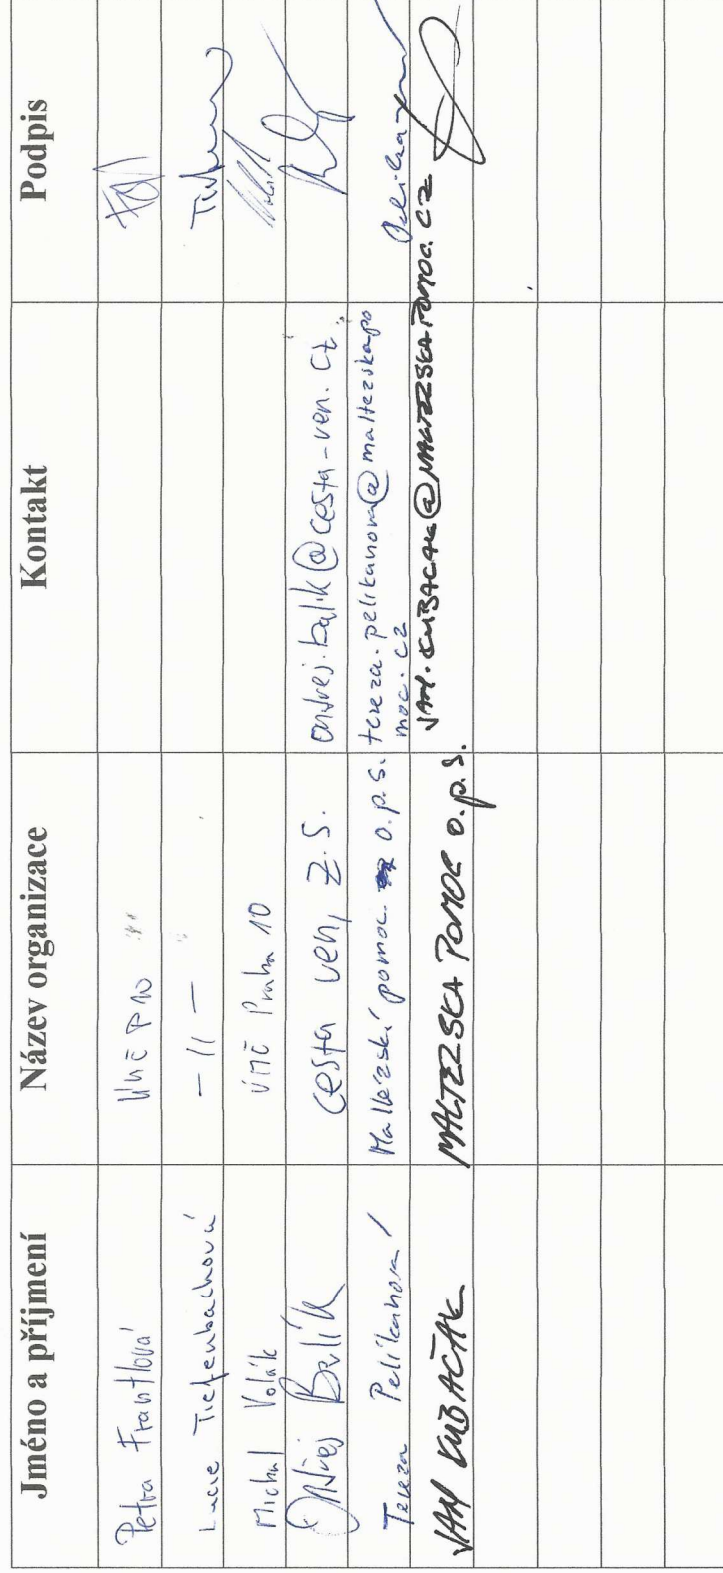 Jméno a příjmení Název organizace Kontakt Podpis
Petra Frantlová ÚMČ P10
Lucie Tiefenbachová - 11 -
Michal Volák ÚMČ Praha 10
Ondřej Balík Cesta ven, z.s. ondrej.balik@cesta-ven.cz
Tereza Pelikánová Maltézská pomoc o.p.s. tereza.pelikanova@maltezskapo
moc.cz Pelikánová
JAN KUBAČÁK MALTÉZSKÁ POMOC o.p.s. JAN.KUBACAK@MALTEZSKAPOMOC.CZ